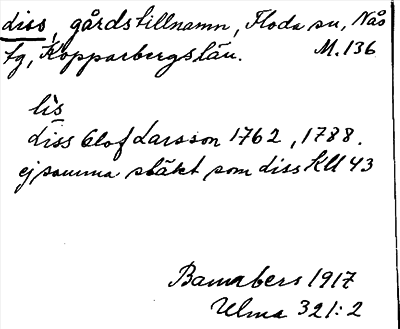 diss, gårdstillnamn, Floda sn, Nås
fg, Kopparbergs län. M. 136
lìs
diss Olof Larsson 1762, 1788.
ej samma släkt som diss KU 43
Barnabers 1917
Ulma 321:2